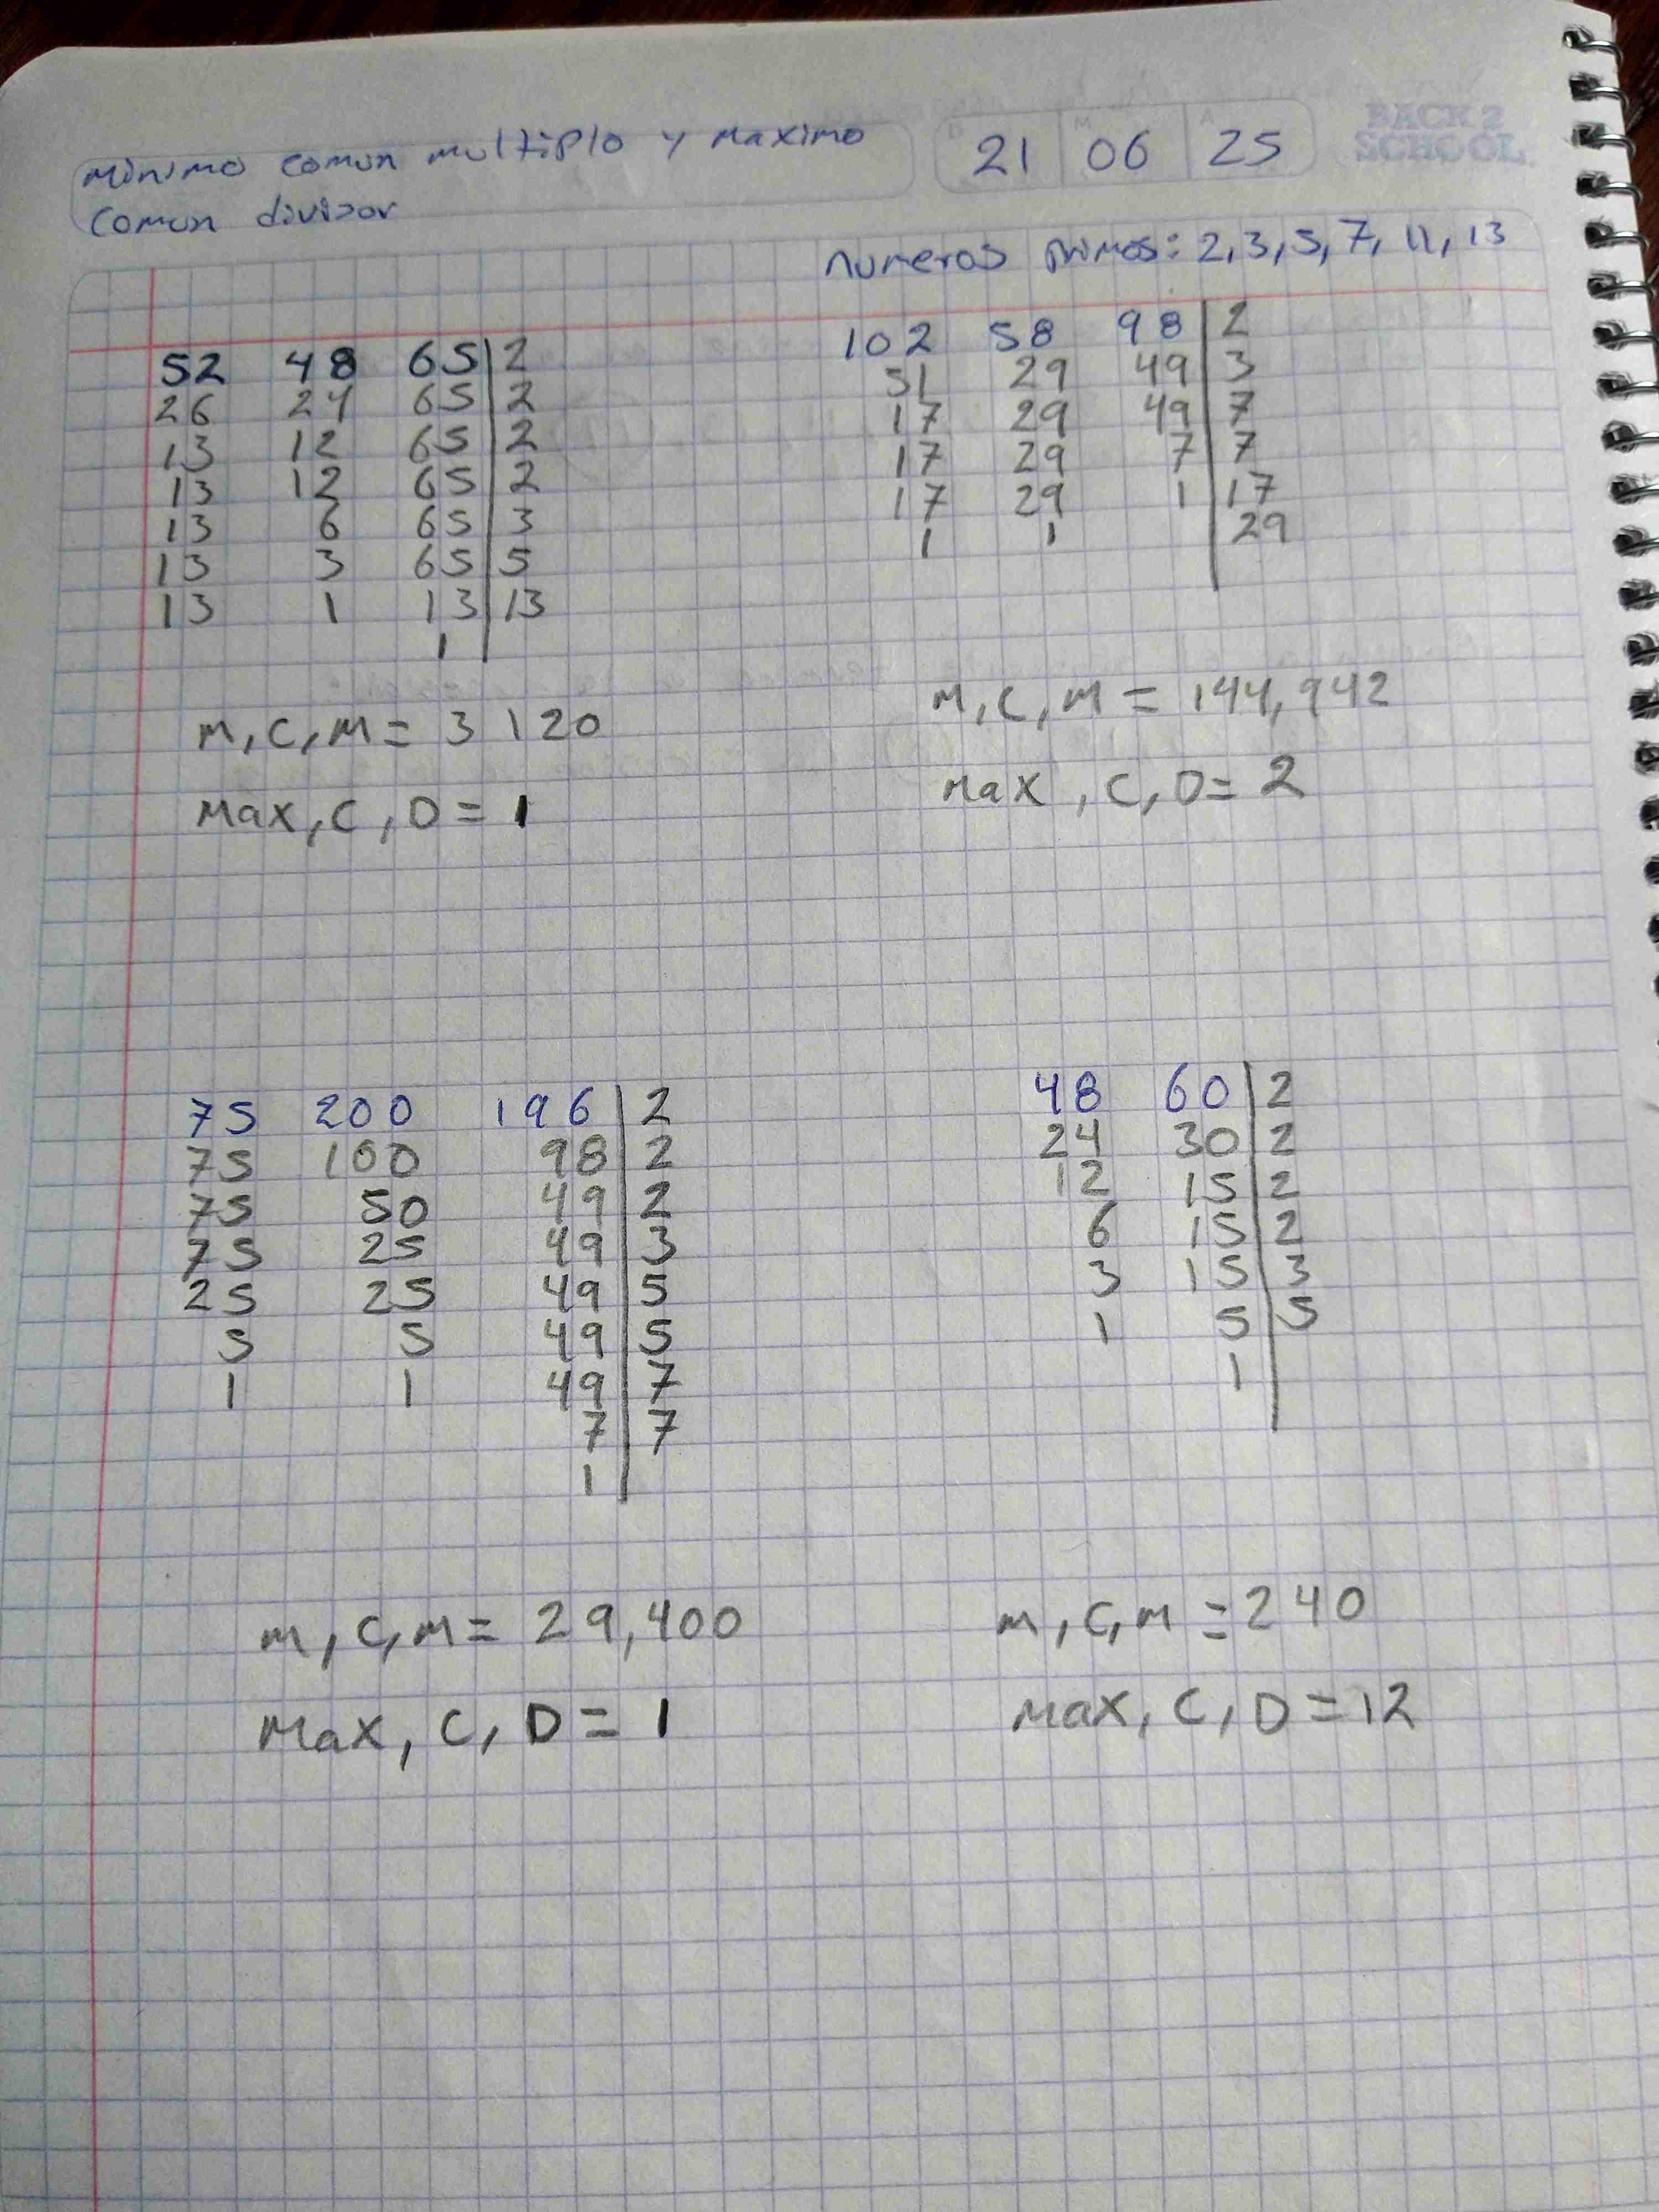 minimo comun multiplo y maximo
comun divisor
D M A
21 06 25
BACK 2
SCHOOL
numeros primos: 2,3,5,7,11,13
52 48 65 | 2
26 24 65 | 2
13 12 65 | 2
13 12 65 | 2
13 6 65 | 3
13 3 65 | 5
13 1 13 | 13
1
M,C,M = 3120
Max,C,D = 1
102 58 98 | 2
51 29 49 | 3
17 29 49 | 7
17 29 7 | 7
17 29 1 | 17
1 1 | 29
M,C,M = 144,942
Max,C,D= 2
75 200 196 | 2
75 100 98 | 2
75 50 49 | 2
75 25 49 | 3
25 25 49 | 5
5 5 49 | 5
1 1 49 | 7
7 | 7
1
M,C,M = 29,400
Max,C,D = 1
48 60 | 2
24 30 | 2
12 15 | 2
6 15 | 2
3 15 | 3
1 5 | 5
1
M,C,M = 240
Max,C,D = 12